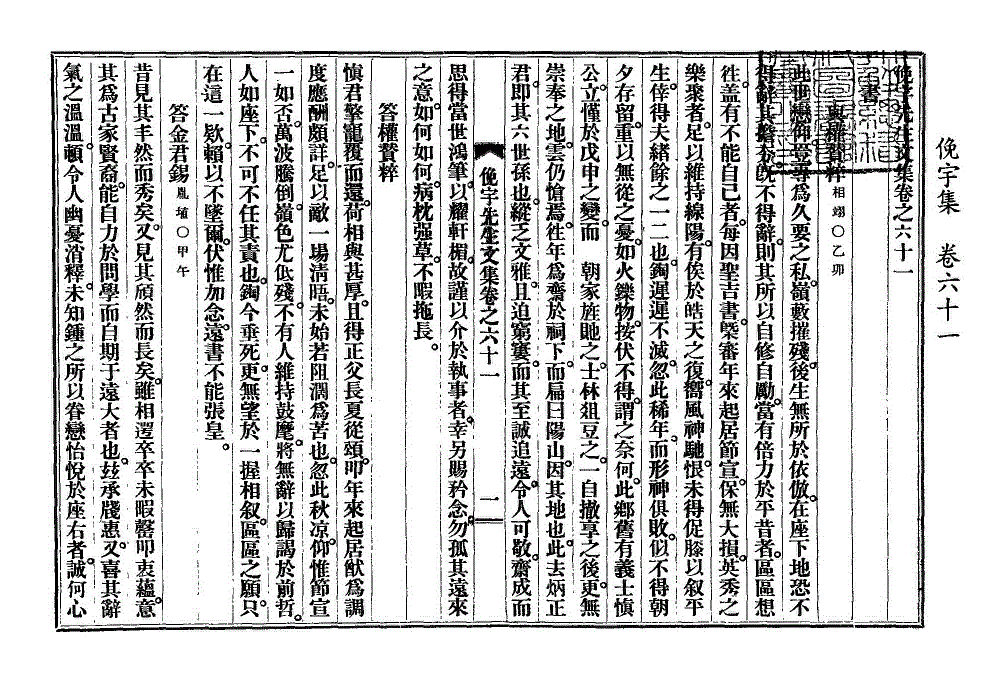 俛宇集　卷六十一
俛宇先生文集卷之六十一
書
與權贊粹 相翊○乙卯
此世戀仰豈等爲久要之私嶺藪摧殘後生無所於依倣在座下地恐不
得辭其擔夯旣不得辭則其所以自修自勵當有倍力於平昔者區區想
往蓋有不能自已者每因聖吉書槩審年來起居節宣保無大損英秀之
樂聚者足以維持線陽有俟於皓天之復嚮風神馳恨未得促膝以叙平
生倖得夫緖餘之一二也鋾遲遲不滅忽此稀年而形神俱敗似不得朝
夕存留重以無從之憂如火鑠物按伏不得謂之奈何此鄕舊有義士愼
公立慬於戊申之變而　朝家旌貤之士林俎豆之一自撤享之後更無
崇奉之地雲仍愴焉往年爲齋於祠下而扁曰陽山因其地也此去炳正
君卽其六世孫也縱乏文雅且迫窮窶而其至誠追遠令人可敬齋成而
俛宇先生文集卷之六十一　一
思得當世鴻筆以耀軒楣故謹以介於執事者幸另賜矜念勿孤其遠來
之意如何如何病枕强草不暇拖長
答權贊粹
愼君擎寵覆而還荷相與甚厚且得正父長夏從頌叩年來起居猷爲調
度應酬頗詳足以敵一場淸晤未始若阻濶爲苦也忽此秋凉仰惟節宣
一如否萬波騰倒嶺色尤低殘不有人維持鼓麾將無辭以歸謁於前哲
人如座下不可不任其責也鋾今垂死更無望於一握相叙區區之願只
在這一欵賴以不墜爾伏惟加念遠書不能張皇
答金君錫 胤埴○甲午
昔見其丰然而秀矣又見其頎然而長矣雖相遌卒卒未暇罄叩衷蘊意
其爲古家賢裔能自力於問學而自期于遠大者也玆承牋惠又喜其辭
氣之溫溫頓令人幽憂消釋未知鍾之所以眷戀怡悅於座右者誠何心